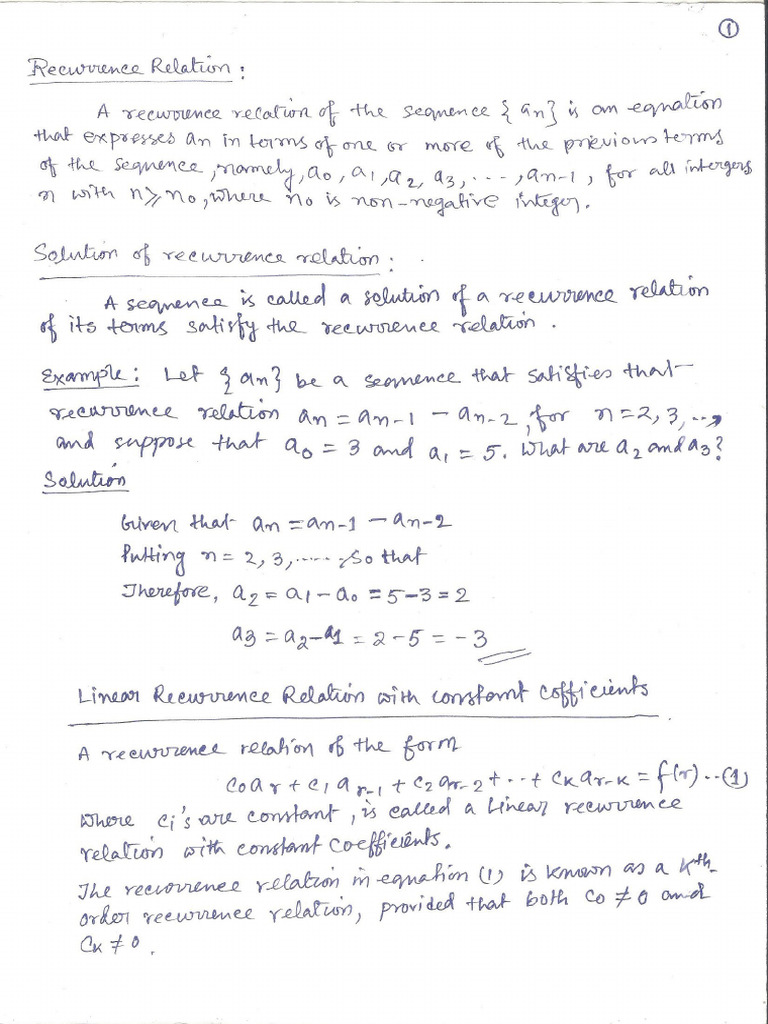 ①
Recurrence Relation :
A recurrence relation of the sequence {an} is an equation
that expresses an in terms of one or more of the previous terms
of the sequence, namely, a₀, a₁, a₂, a₃, ..., an-1, for all intergers
n with n ≥ n₀, where n₀ is non-negative integer.
Solution of recurrence relation :
A sequence is called a solution of a recurrence relation
of its terms satisfy the recurrence relation.
Example : Let {an} be a sequence that satisfies that
recurrence relation an = an-1 - an-2, for n = 2, 3, ...,
and suppose that a₀ = 3 and a₁ = 5. What are a₂ and a₃?
Solution
Given that an = an-1 - an-2
Putting n = 2, 3, ..... , so that
Therefore, a₂ = a₁ - a₀ = 5 - 3 = 2
a₃ = a₂ - a₁ = 2 - 5 = -3
Linear Recurrence Relation with constant cofficients
A recurrence relation of the form
c₀ar + c₁ar-1 + c₂ar-2 + ... + cₖar-k = f(r) ..(1)
Where ci's are constant, is called a linear recurrence
relation with constant coefficients.
The recurrence relation in equation (1) is known as a Kth-
order recurrence relation, provided that both c₀ ≠ 0 and
cₖ ≠ 0.